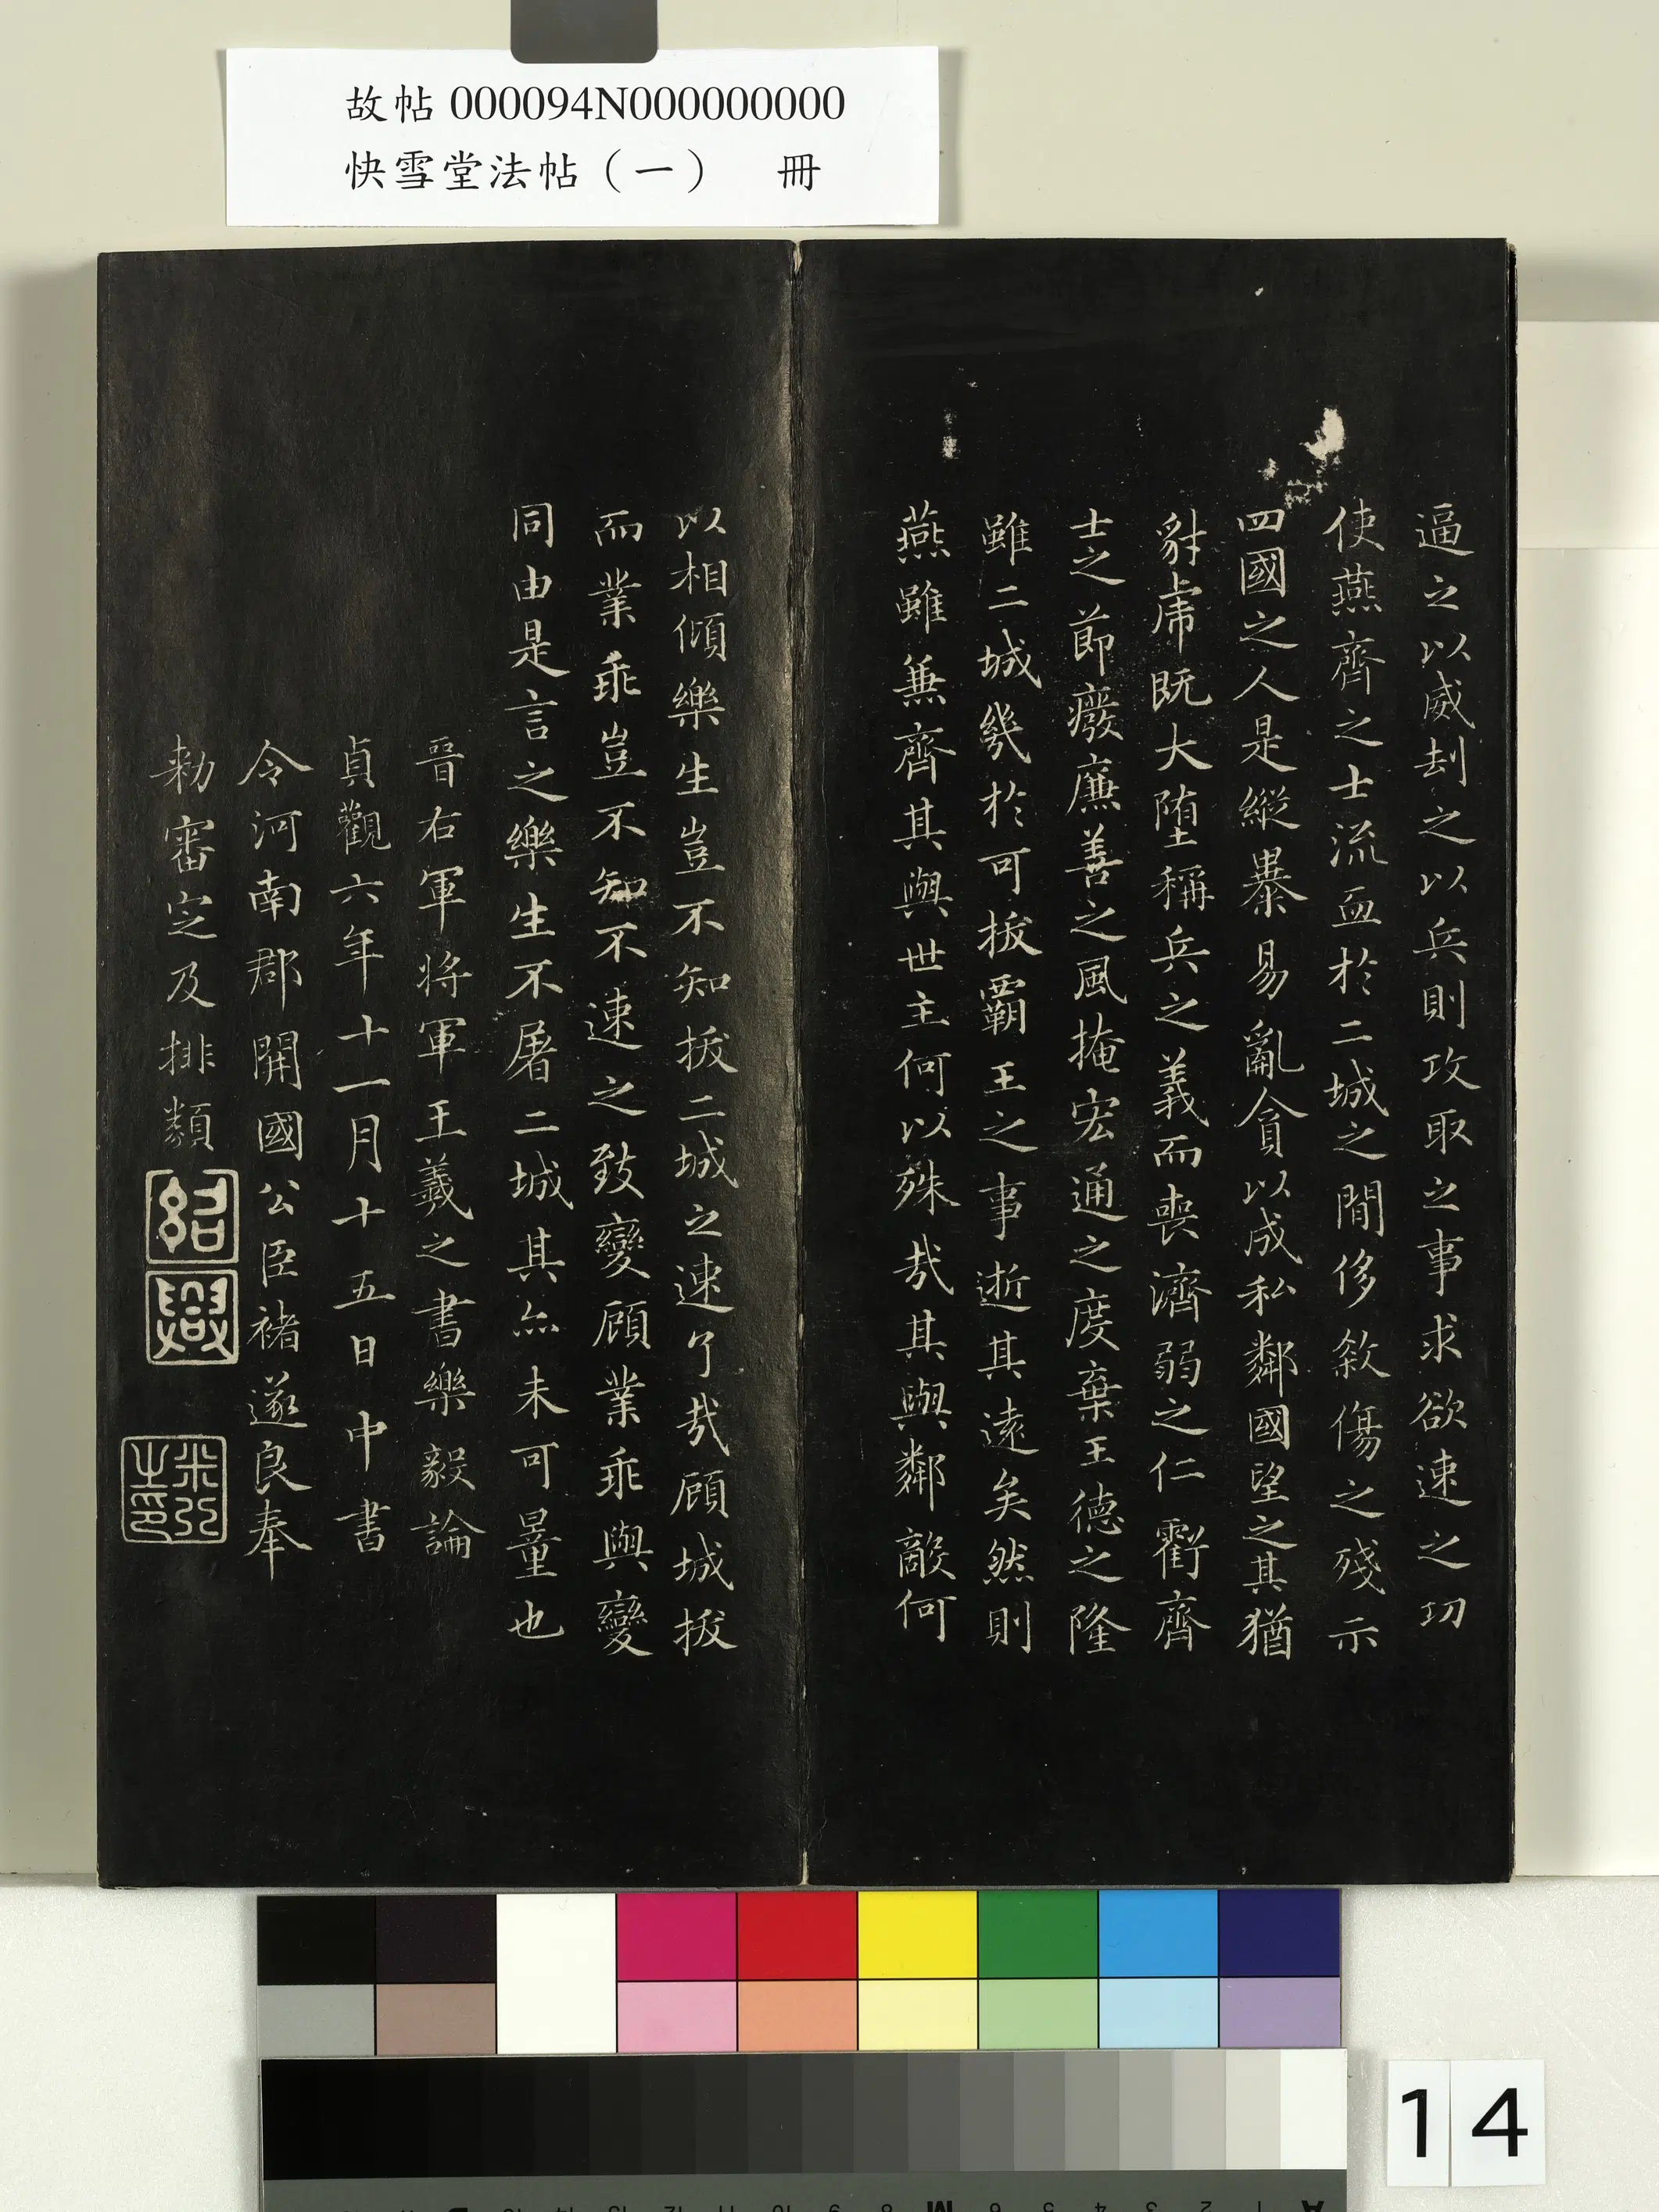 故帖000094N000000000
快雪堂法帖（一） 冊
逼之以威劫之以兵則攻取之事求欲速之功
使燕齊之士流血於二城之間侈敘傷之殘示
四國之人是縱暴易亂貪以成私鄰國望之其猶
豺虎既大墮稱兵之義而喪濟弱之仁虧齊
士之節廢廉善之風掩宏通之度棄王德之隆
雖二城幾於可拔霸王之事逝其遠矣然則
燕雖兼齊其與世主何以殊哉其與鄰敵何
以相傾樂生豈不知拔二城之速了哉顧城拔
而業乖豈不知不速之致變顧業乖與變
同由是言之樂生不屠二城其亦未可量也
晉右軍將軍王羲之書樂毅論
貞觀六年十一月十五日中書
令河南郡開國公臣褚遂良奉
勅審定及排類
紹興
米芾之印
14